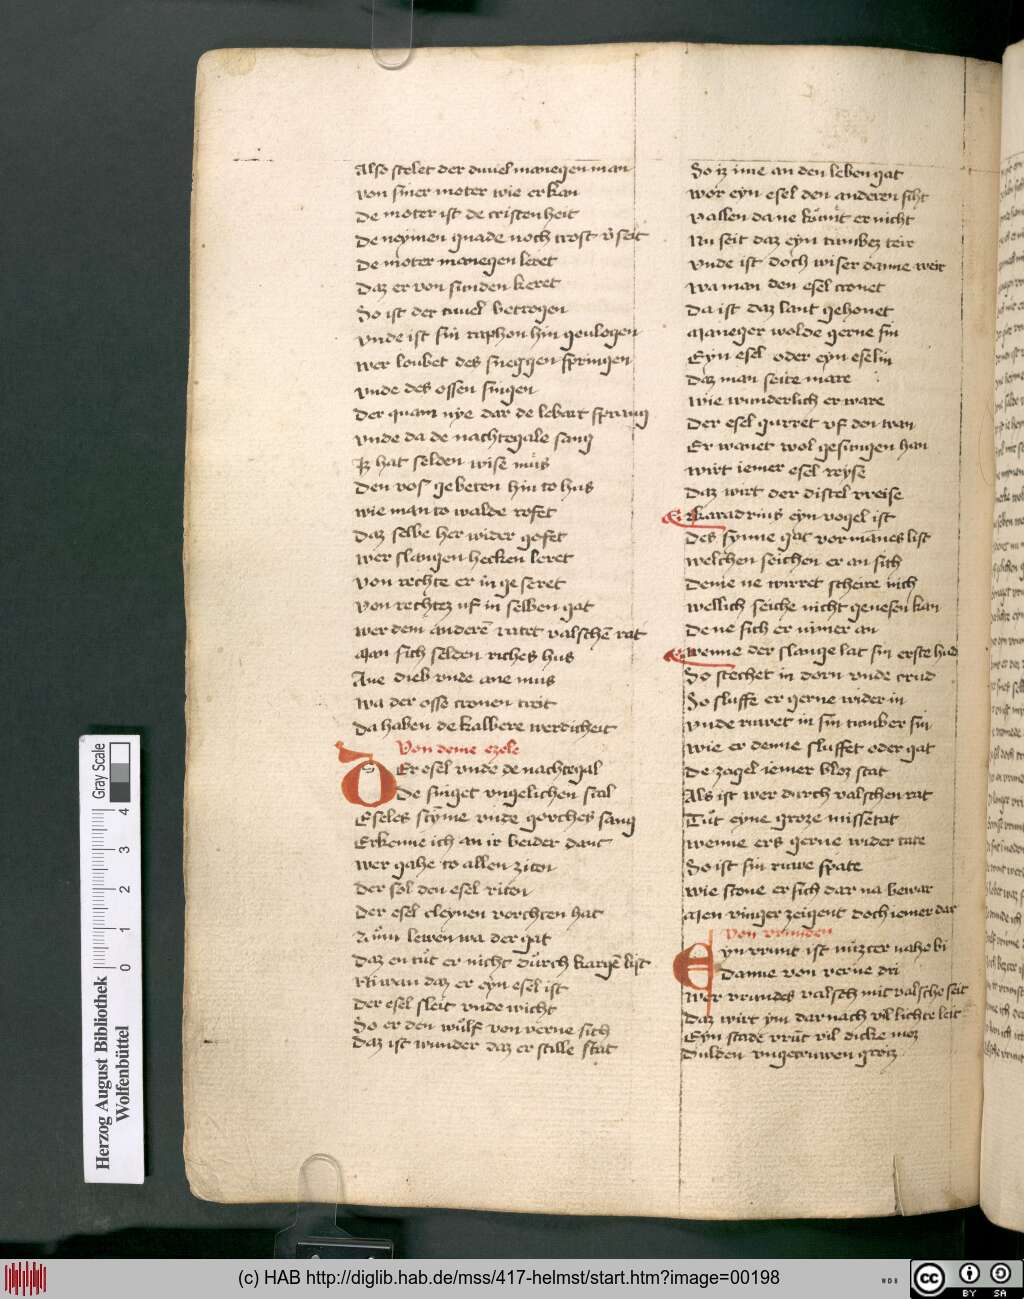 Also stelet der duuel manegen man
von siner moter wie er kan
De moter ist de cristenheit
De neymen gnade noch trost v̄seit
De moter manegen leret
Daz er von sunden keret
So ist der tuuel betrogen
vnde ist sin raphon hin geulogen
wer loubet des sneggen springen
vnde des ossen singen
Der quam nye dar de lebart sprang
vnde da de nachtegale sang
Iz hat selden wise mus
Den vos gebeten hin to hus
wie man to walde rofet
Daz selbe her wider gofet
wer slangen hecken leret
von rechte er in geseret
von rechtez uf in selben gat
wer dem anderē ratet valschē rat
Man sich selden riches hus
Ane dieb vnde ane mus
wa der osse cronen treit
Da haben de kalbere werdicheit
Von deme ezele
Der esel vnde de nachtegal
De singet vngelichen scal
Eseles styme vnde gouches sang
Erkenne ich an ir beider danc
wer gahe to allen ziten
der sol den esel riten
Der esel cleynen vorchten hat
Zum lewen wa der gat
Daz en tut er nicht durch kargē list
Ni wan daz er eyn esel ist
der esel sleit vnde wicht
So er den wulf von verne sich
daz ist wunder daz er stille stat
So iz ime an den leben gat
wor eyn esel den anderen siht
vallen da ne kumt er nicht
Nu seit daz eyn tumbez teir
vnde ist doch wiser danne weir
wa man den esel cronet
Da ist daz lant gehonet
Maneger wolde gerne sin
Eyn esel oder eyn eselin
Daz man seite mare
wie wunderlich er ware
Der esel gurret vf den wan
Er wanet wol gesungen han
wirt iemer esel reyse
daz wirt der distel vreise
Karadrius eyn vogel ist
des synne gat vor manes list
welchen seichen er an sich
deme ne wirret scheire nich
wellich seiche nicht genesen kan
De ne sich er nimer an
wenne der slange lat sin erste hud
So stechet in dorn vnde crud
So sluffe er gerne wider in
vnde ruwet in sin tumber sin
wie er denne sluffet oder gat
de zagel iemer bloz stat
Als ist wer durch valschen rat
Tut eyne groze missetat
wenne ers gerne wider tate
So ist sin ruwe spate
wie scone er sich dar na bewar
Men vinger zeigent doch iemer dar
Von vrunden
Eyn vrunt ist nuzcer nahe bi
Danne von verne dri
wer vrundes valsch mit valsche seit
Daz wirt ym dar nach vil lichte leit
Eyn stade vrūt vil dicke mez
Dulden vngetruwen groiz
(c) HAB http://diglib.hab.de/mss/417-helmst/start.htm?image=00198
Herzog August Bibliothek
Wolfenbüttel
Gray Scale
0 1 2 3 4
WDB
cc BY SA